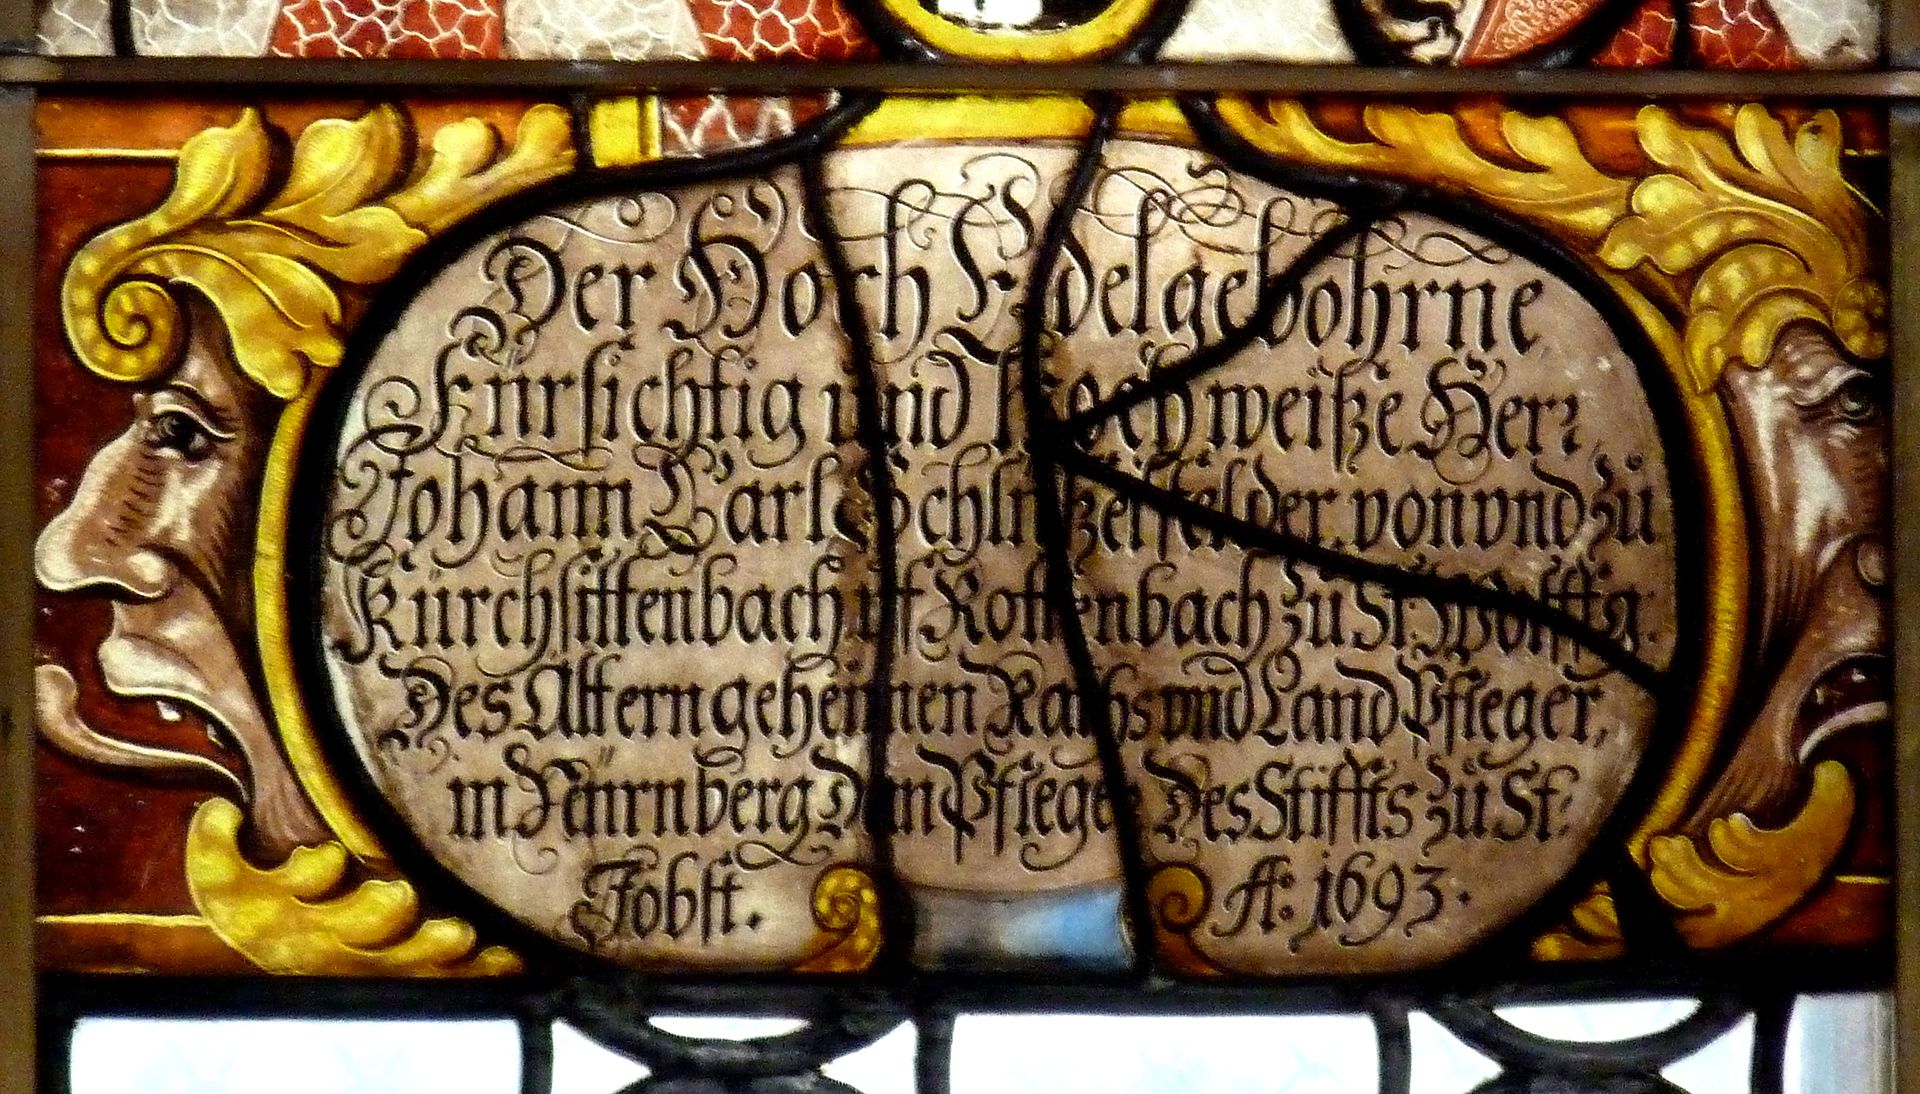 Der Hoch Edelgebohrne
Fürsichtig und Hochweiße Herr
Johann Carl Schlüsselfelder, von vnd zü
Kürchsittenbach uf Rottenbach zu St: Wolffg.
Des Altern geheimen Raths vnd Land Pfleger,
in Nürnberg Dan Pfleger Des Stiffts zü St:
Jobst. Aº: 1693.